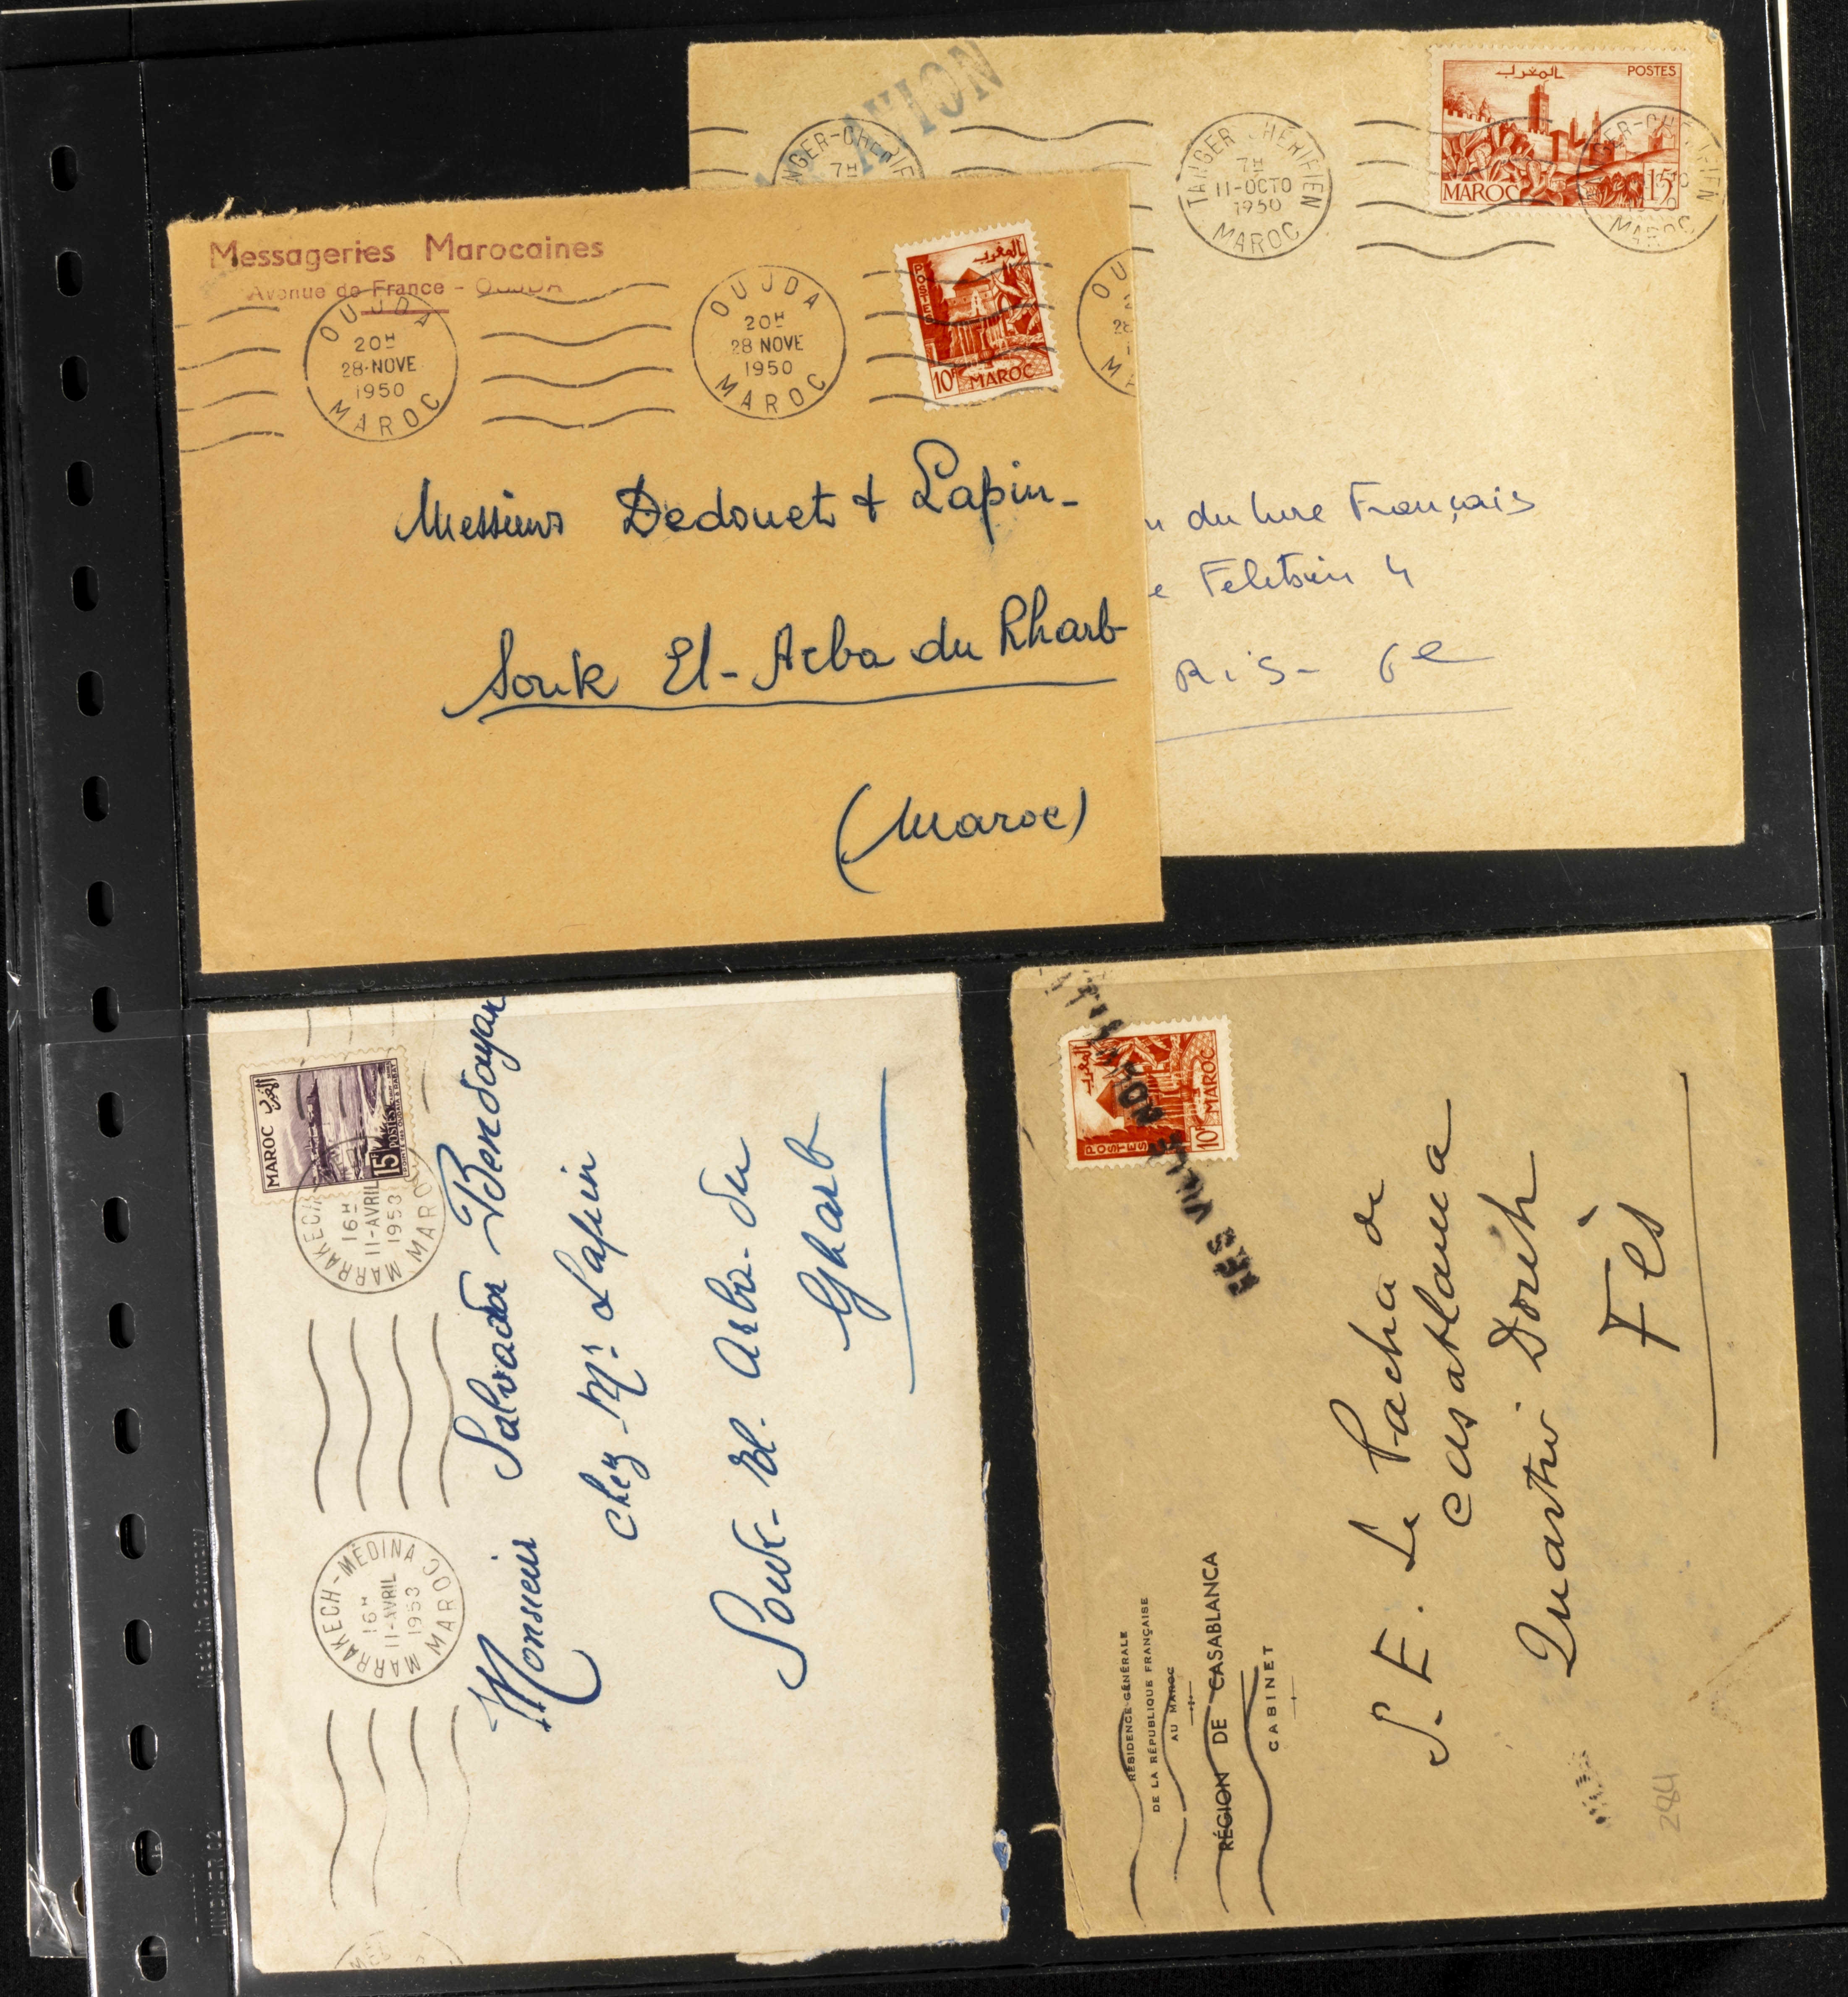 AVION
المغرب
POSTES
MAROC
15F
TANGER-CHÉRIFIEN
7H
TANGER CHÉRIFIEN
7H
11-OCTO
1950
MAROC
MAROC
du livre Français
Felibien 4
RIS- 6e
Messageries Marocaines
Avenue de France - OUJDA
OUJDA
20H
28-NOVE
1950
MAROC
OUJDA
20H
28 NOVE
1950
MAROC
OU
28
M
POSTES
المغرب
10F
MAROC
Messieurs Dedouet & Lapin-
Souk El-Arba du Rharb
(Maroc)
MAROC
المغرب
15F
POSTES
MARRAKECH
16H
11-AVRIL
1953
MAROC
MARRAKECH-MÉDINA
16H
11-AVRIL
1953
MAROC
Monsieur Salvador Bendayan
chez Mr. Lapin
Souk-El. Arba-du
Gharb
المغرب
POSTES
10F
MAROC
FÈS VILLE NOUVELLE
RÉSIDENCE GÉNÉRALE
DE LA RÉPUBLIQUE FRANÇAISE
AU MAROC
RÉGION DE CASABLANCA
CABINET
S.E. Le Pacha de
Casablanca
Quartier Douh
Fès
284
Made in Germany
LINDNER